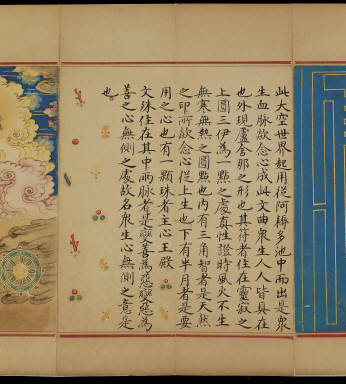 此大空世界起用從阿耨多池中而出是衆
生血脉欲念心成此文曲衆生人人皆具在
也外現盧舍那之形也其符者住在靈寂之
上圓三伊為一點之處真性證時風火不生
無寒無熱之圓點也内有三角智者是天然
之印所欲念心從上生也下有半月者是要
用之心也有一顆珠者主心王殿
文珠住在其中兩脉者是變善為惡變惡為
善之心無側之處故名衆生心無側之意是
也